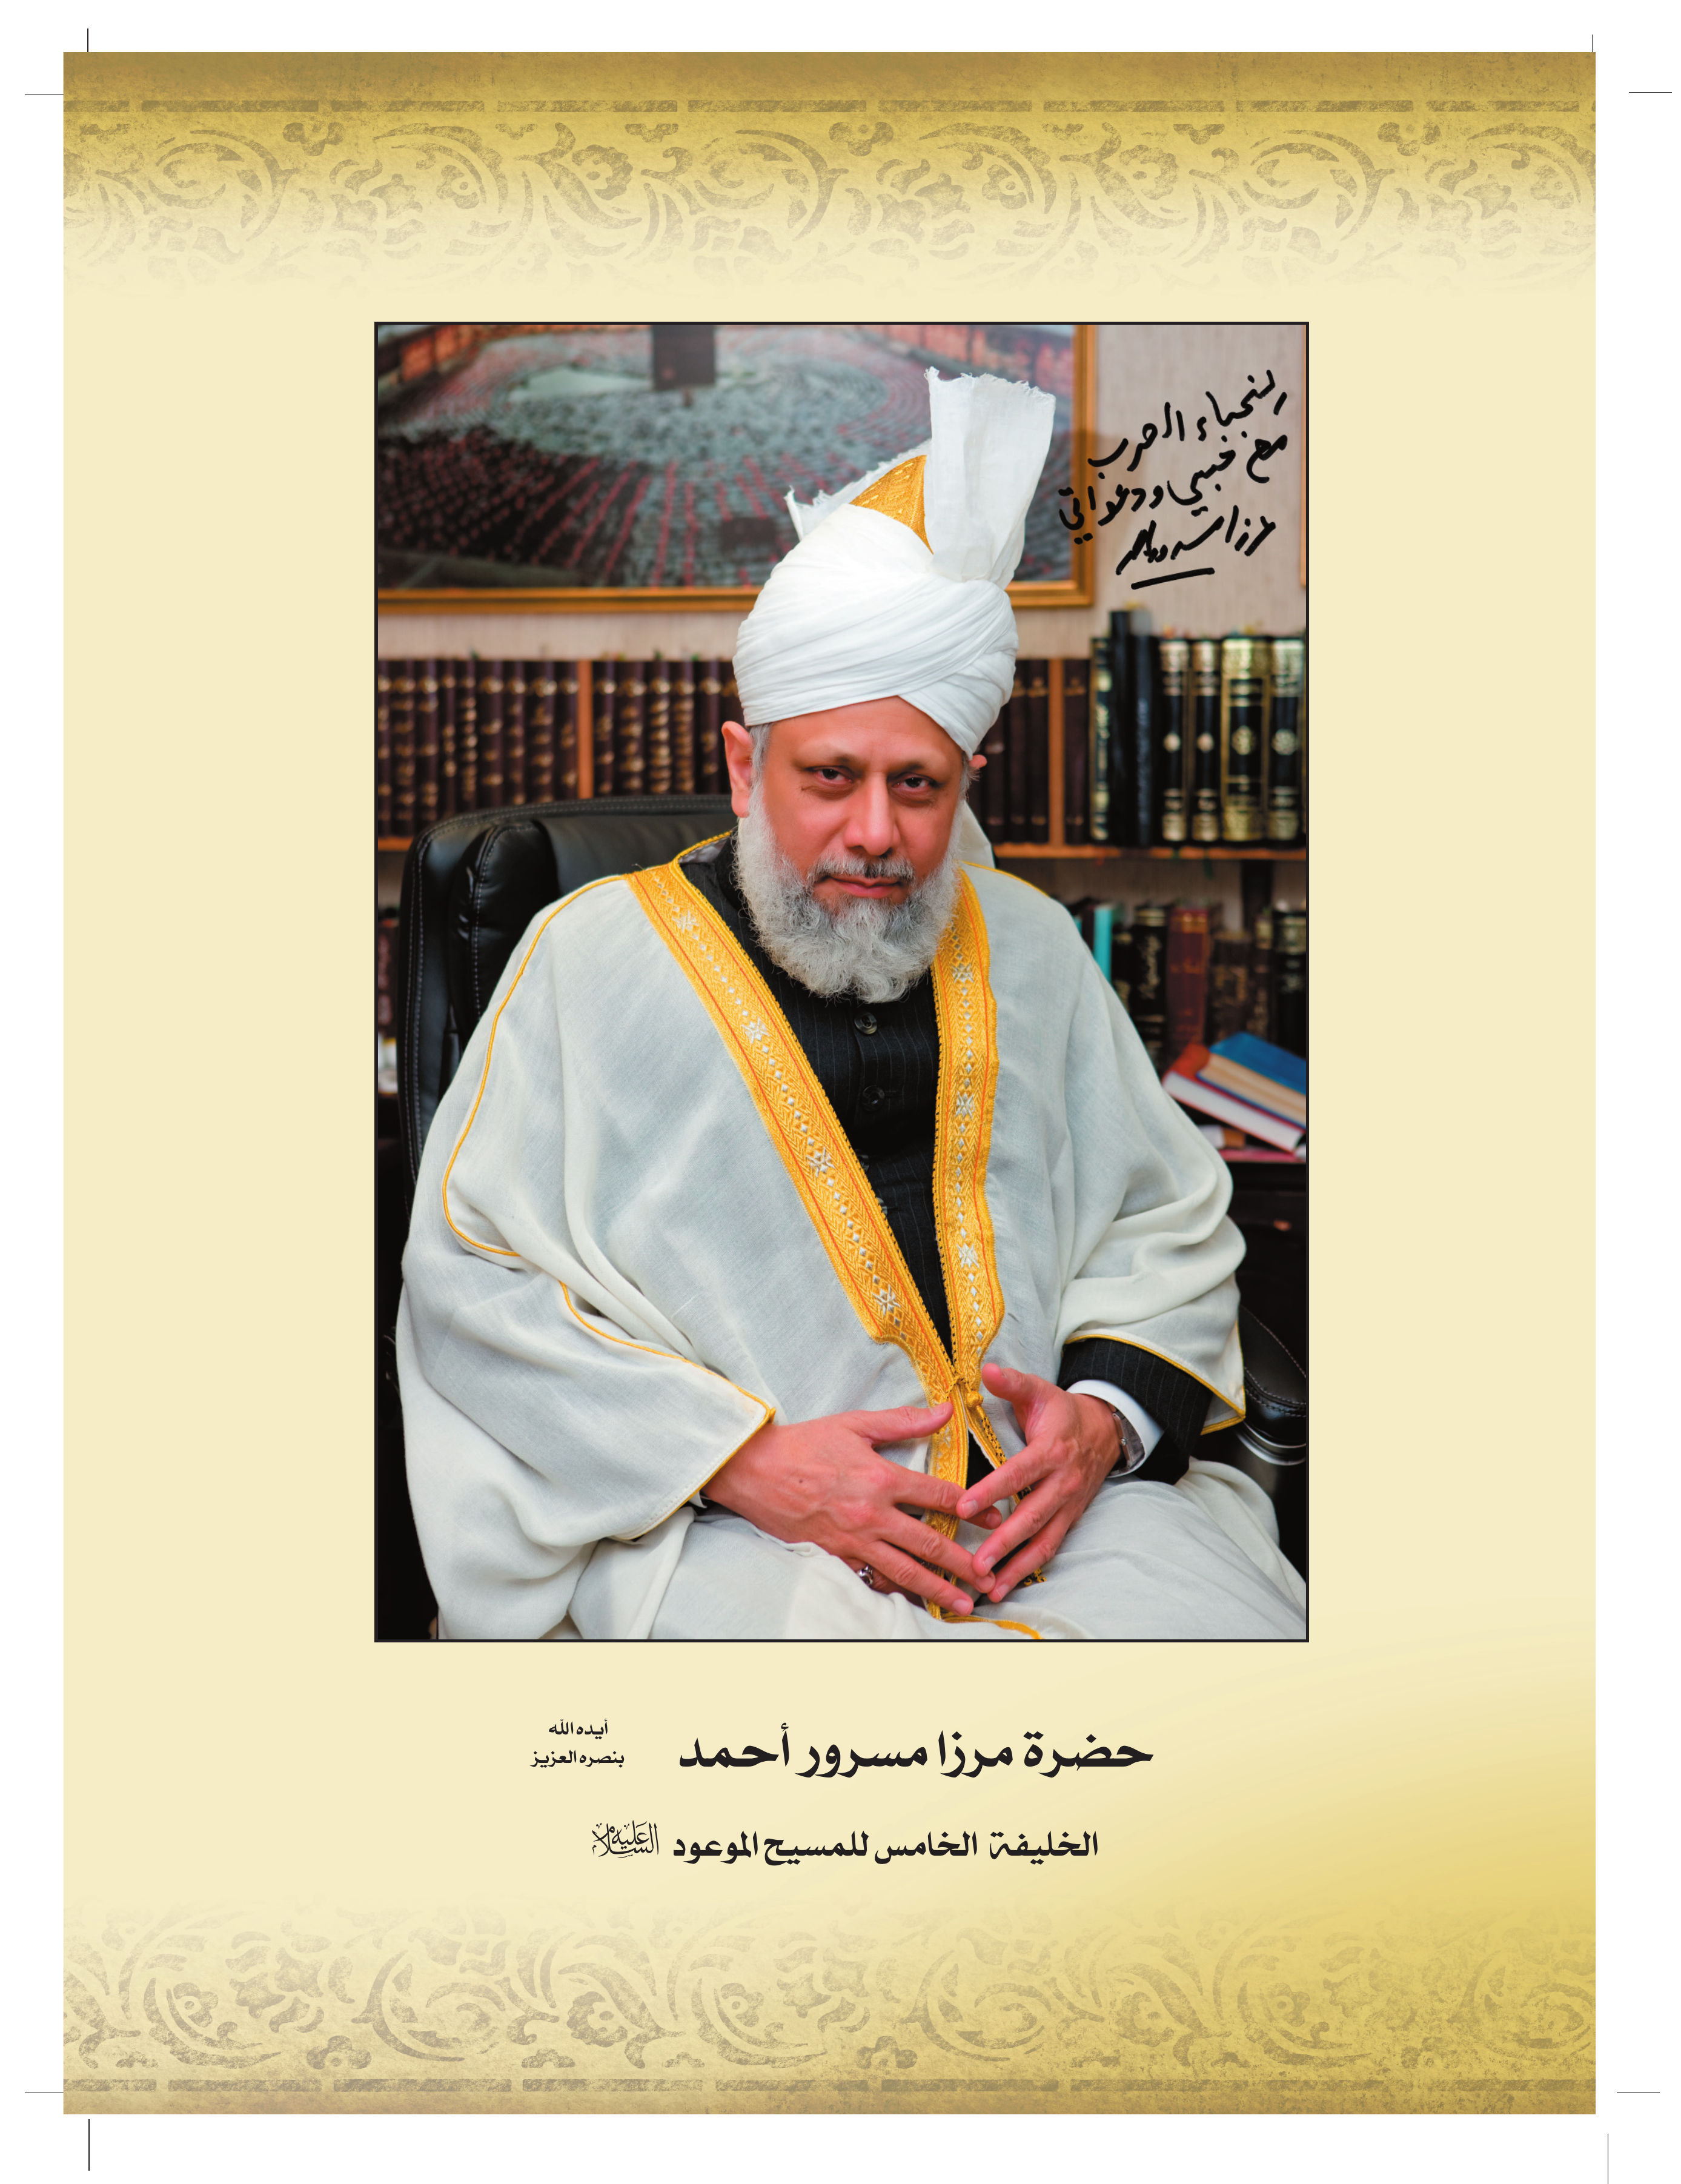 لنجباء العرب
مع حبي ودعواتي
مرزا مسرور احمد
حضرة مرزا مسرور أحمد
أيده الله
بنصره العزيز
الخليفة الخامس للمسيح الموعود عليه السلام